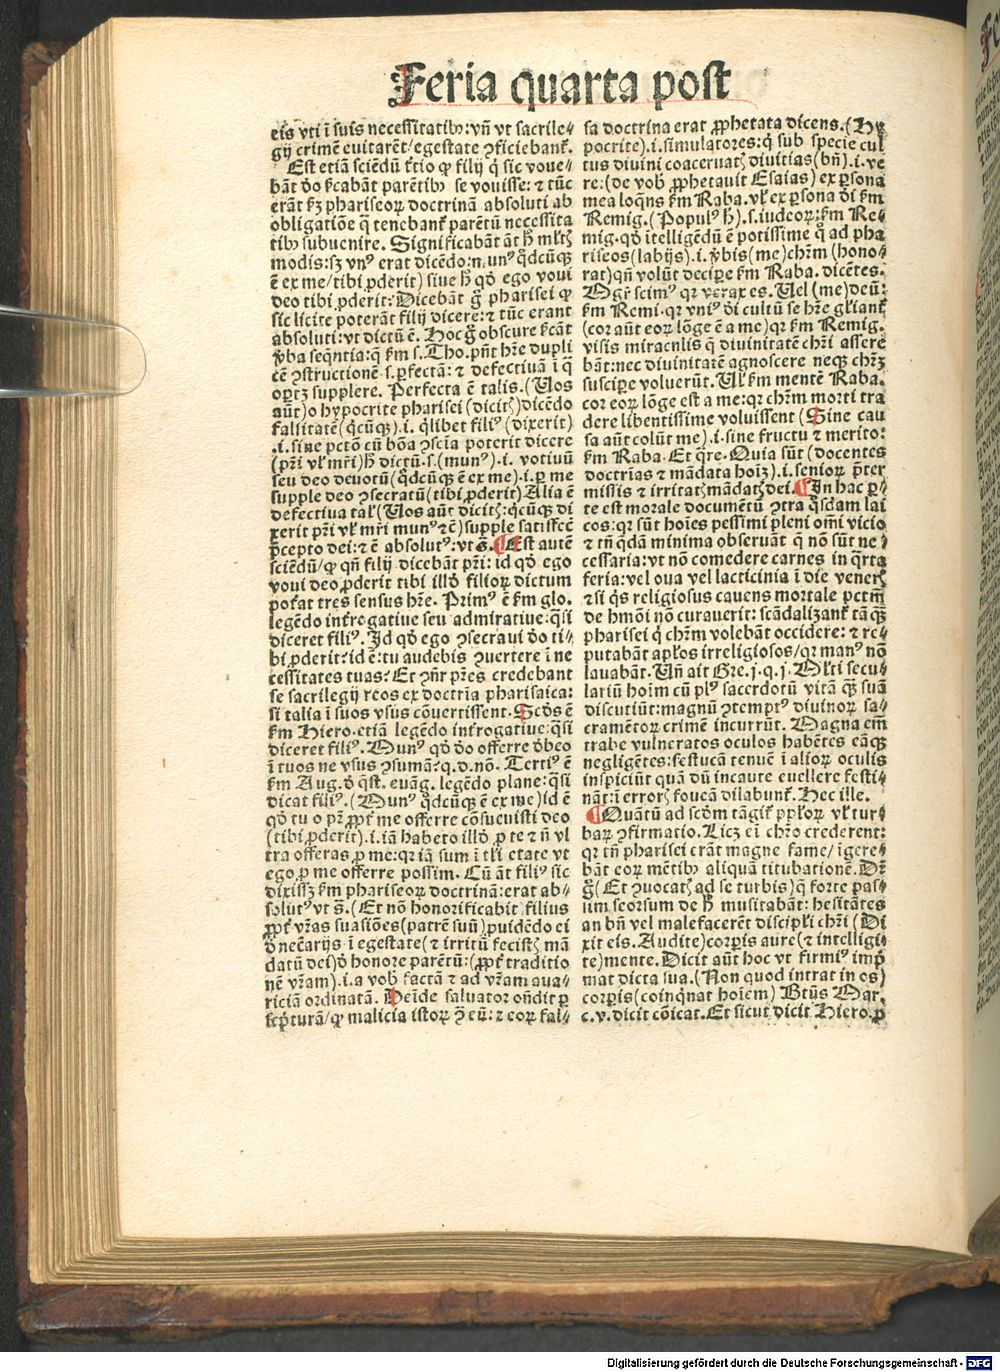 Feria quarta post
eis vti ī suis necessitatibꝰ: vñ vt sacrile⸗
gij crimē euitarēt/egestate ꝯficiebant̄.
Est etiā sciēdū t̄tio ꝙ filij q̇ sic voue⸗
bāt ꝺo ẜcabāt parētibꝰ se vouisse: ⁊ tūc
erāt ẜꝫ phariseoꝝ doctrinā absoluti ab
obligatiōe q̄ tenebant̄ parētū necessita
tibꝰ subuenire. Significabāt āt h̄ ml̓tꝭ
modis: sꝫ vnꝰ erat dicēdo: n. unꝰ q̇dcūqꝫ
ē ex me/tibi ꝓderit) siue h̄ qꝺ ego voui
deo tibi ꝓderit: Dicebāt g̊ pharisei ꝙ
sic licite poterāt filij dicere: ⁊ tūc erant
absoluti: vt dictū ē. Hoc g̊ obscure ẜcāt
v̓ba seqn̄tia: q̄ ẜm s. Tho. pn̄t hr̄e dupli
cē ꝯstructionē s. ꝑfectā: ⁊ defectiuā ī q̄
oportꝫ supplere. Perfecta ē talis. (Vos
aūt) o hypocrite pharisei (dicitꝭ) dicēdo
falsitatē (q̇cūqꝫ). i. q̇libet filiꝰ (dixerit)
.i. sine pctō cū bōa ꝯscia poterit dicere
(pr̄i vl̓ mr̄i) h̄ dictū. s. (munꝰ). i. votiuū
seu deo deuotū (q̇dcūqꝫ ē ex me). i. ꝑ me
supple deo ꝯsecratū (tibi ꝓderit) Alia ē
defectiua tal̓ (Vos aūt dicitꝭ: q̇cūqꝫ di
xerit pr̄i vl̓ mr̄i munꝰ ⁊ē) supple satisfcē
p̄cepto dei: ⁊ ē absolutꝰ: vt s̄. ¶ Est autē
sciēdū/ꝙ qn̄ filij dicebāt pr̄i: id qꝺ ego
voui deo ꝓderit tibi illꝺ filioꝝ dictum
pot̄at tres sensus hr̄e. Primꝰ ē ẜm glo.
legēdo int̄rogatiue seu admiratiue: q̄si
diceret filiꝰ. Id qꝺ ego ꝯsecraui ꝺo ti⸗
bi ꝓderit: id ē: tu audebis ꝯuertere ī ne
cessitates tuas? Et ꝯn̄r pr̄es credebant
se sacrilegij reos ex doctrīa pharisaica:
si talia ī suos vsus cōuertissent. Scꝺs ē
ẜm Hiero. etiā legēdo int̄rogatiue: q̄si
diceret filiꝰ. Munꝰ qꝺ ꝺo offerre ꝺbeo
ī tuos ne vsus ꝯsumā? q. d. nō. Tertiꝰ ē
ẜm Aug. ꝺ qst̄. euāg. legēdo plane: q̄si
dicat filiꝰ. (Munꝰ q̇dcūqꝫ ē ex me) id ē
qꝺ tu o pr̄ ꝓpt̄ me offerre cōsueuisti deo
(tibi ꝓderit). i. iā habeto illꝺ ꝑ te ⁊ n̄ vl
tra offeras ꝑ me: qꝛ iā sum ī tl̓i etate vt
ego ꝑ me offerre possim. Cū āt filiꝰ sic
dixissꝫ ẜm phariseoꝝ doctrinā: erat ab⸗
solutꝰ vt s̄. (Et nō honorificabit filius
ꝓpt̄ vr̄as suasiōes (patrē suū) ꝓuidēdo ei
ꝺ nec̄arijs ī egestate (⁊ irritū fecistꝭ mā
datū dei) ꝺ honore parētū: (ꝓpt̄ traditio
nē vr̄am). i. a vob̄ factā ⁊ ad vr̄am aua⸗
riciā ordinatā. Deīde saluator oñdit ꝑ
sc̓pturā/ꝙ malicia istoꝝ ꝯ̄ eū: ⁊ eoꝝ fal⸗
sa doctrina erat ꝓphetata dicens. (Hy
pocrite). i. simulatores: q̇ sub specie cul
tus diuini coaceruatꝭ diuitias (bn̄). i. ve
re: (de vob̄ ꝓphetauit Esaias) ex ꝑsona
mea loqn̄s ẜm Raba. vl̓ ex ꝑsona ꝺi ẜm
Remig. (Populꝰ h̄). s. iudeoꝝ: ẜm Re⸗
mig. qꝺ ītelligēdū ē potissime q̊ ad pha
riseos (labijs). i. v̓bis (me) chr̄m (hono⸗
rat) qn̄ volūt deciꝑe ẜm Raba. dicētes.
Mgr̄ scimꝰ qꝛ verax es. Vel (me) deū:
ẜm Remi. qꝛ vniꝰ ꝺi cultū se hr̄e gl̓iant̄
(cor aūt eoꝝ lōge ē a me) qꝛ ẜm Remig.
visis miraculis q̄ diuinitatē chr̄i asserē
bāt: nec diuinitatē agnoscere neqꝫ chr̄ꝫ
susciꝑe voluerūt. Vl̓ ẜm mentē Raba.
cor eoꝝ lōge est a me: qꝛ chr̄m morti tra
dere libentissime voluissent (Sine cau
sa aūt colūt me). i. sine fructu ⁊ merito:
ẜm Raba. Et q̄re. Quia sūt (docentes
doctrīas ⁊ mādata hoīꝫ). i. senioꝝ p̄ter
missis ⁊ irritatꝭ mādatꝭ dei. ¶ In hac ꝑ⸗
te est morale documētū ꝯtra q̇sdam lai
cos: qꝛ sūt hoīes pessimi pleni om̄i vicio
⁊ tn̄ q̇dā minima obseruāt q̄ nō sūt ne⸗
cessaria: vt nō comedere carnes in q̄rta
feria: vel oua vel lacticinia ī die venerꝭ
⁊ si q̇s religiosus cauens mortale pctm̄
de hmōi nō curauerit: scādalizant̄ tāqꝫ
pharisei q̇ chr̄m volebāt occidere: ⁊ re⸗
putabāt apl̓os irreligiosos/qꝛ manꝰ nō
lauabāt. Vñ ait Gre. j. q. j. Ml̓ti secu⸗
lariū hoīm cū plꝰ sacerdotū vitā qꝫ̄ suā
discutiūt: magnū ꝯtemptꝰ diuinoꝝ sa⸗
cramētoꝝ crimē incurrūt. Magna em̄
trabe vulneratos oculos habētes eāqꝫ
negligētes: festucā tenuē ī alioꝝ oculis
inspiciūt quā dū incaute euellere festi⸗
nāt: ī errorꝭ foueā dilabunt̄. Hec ille.
¶ Quātū ad scꝺm tāgit̄ ppl̓oꝝ vl̓ tur⸗
baꝝ ꝯfirmatio. Licꝫ ei᷒ chr̄o crederent:
qꝛ tn̄ pharisei erāt magne fame/ īgere⸗
bāt eoꝝ mētibꝰ aliquā titubationē. Dr̄
g̊ (Et ꝯuocatꝭ ad se turbis) q̄ forte pas⸗
sim seorsum de h̄ musitabāt: hesitātes
an bn̄ vel malefacerēt discipl̓i chr̄i (Di
xit eis. Audite) corꝑis aure (⁊ intelligi⸗
te) mente. Dicit aūt hoc vt firmiꝰ imp̄
mat dicta sua. (Non quod intrat in os)
corꝑis (coinq̇nat hoīem) Btūs Mar.
c. v. dicit cōicat. Et sicut dicit Hiero. ꝑ
Digitalisierung gefördert durch die Deutsche Forschungsgemeinschaft - DFG